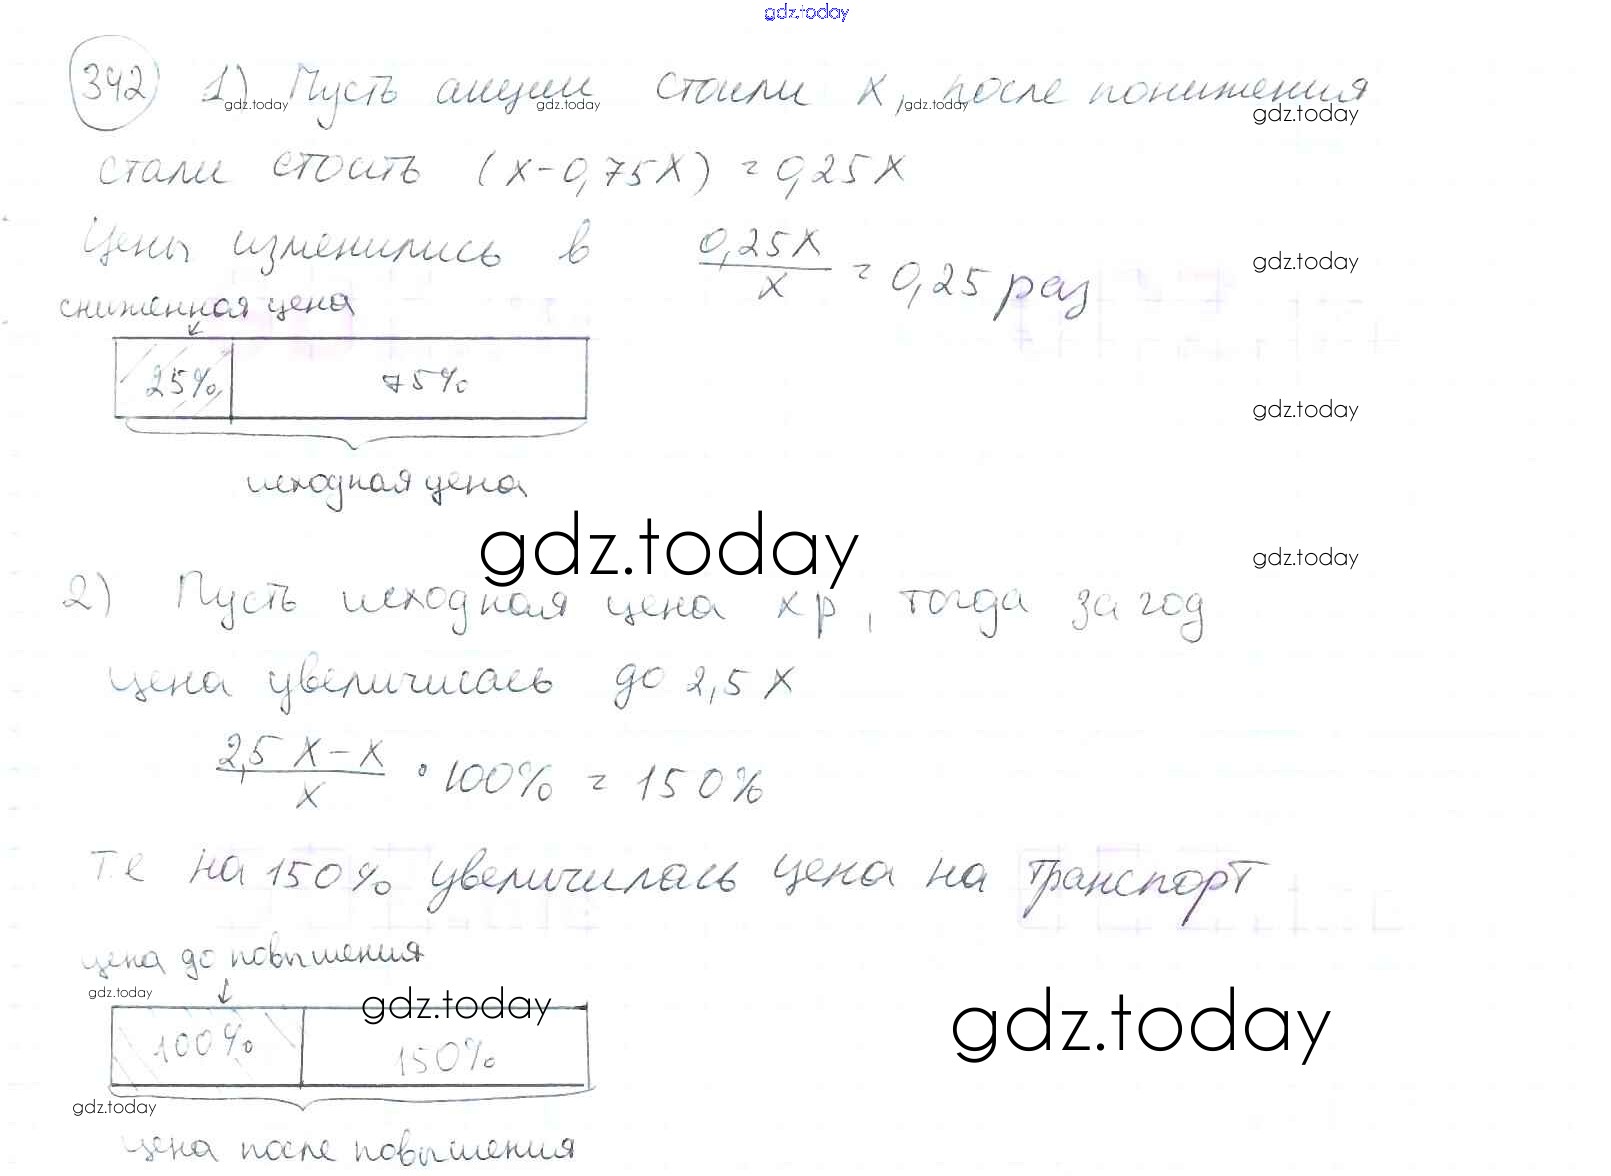 gdz.today
342 1) Пусть акции стоили x, после понижения
gdz.today gdz.today gdz.today gdz.today
стали стоить (x-0,75x) = 0,25x
Цены изменились в 0,25x/x = 0,25 раз
gdz.today
сниженная цена
25% 75%
gdz.today
исходная цена
gdz.today
gdz.today
2) Пусть исходная цена x р, тогда за год
цена увеличисась до 2,5 x
2,5 x - x / x · 100% = 150%
т.е на 150% увеличилась цена на транспорт
цена до повышения
gdz.today gdz.today gdz.today
100% 150%
gdz.today
цена после повышения